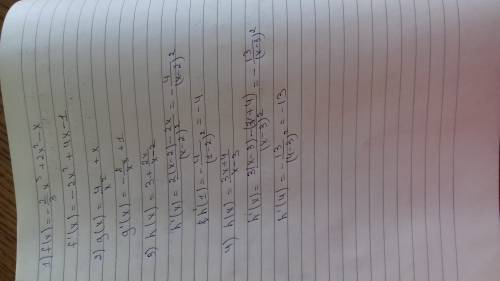 1) f(x) = -2/3 x³ + 2x² - x
f'(x) = -2x² + 4x - 1
2) g(x) = 4/x + x
g'(x) = + 1
3) h(x) = 3 + 2x/(x-2)
h'(x) = (2(x-2) - 2x)/(x-2)² = - 4/(x-2)²
h'(1) = - 4/(1-2)² = -4
4) h(x) = (3x+4)/(x-3)
h'(x) = (3(x-3) - (3x+4))/(x-3)² = - 13/(x-3)²
h'(4) = 13/(4-3)² = -13